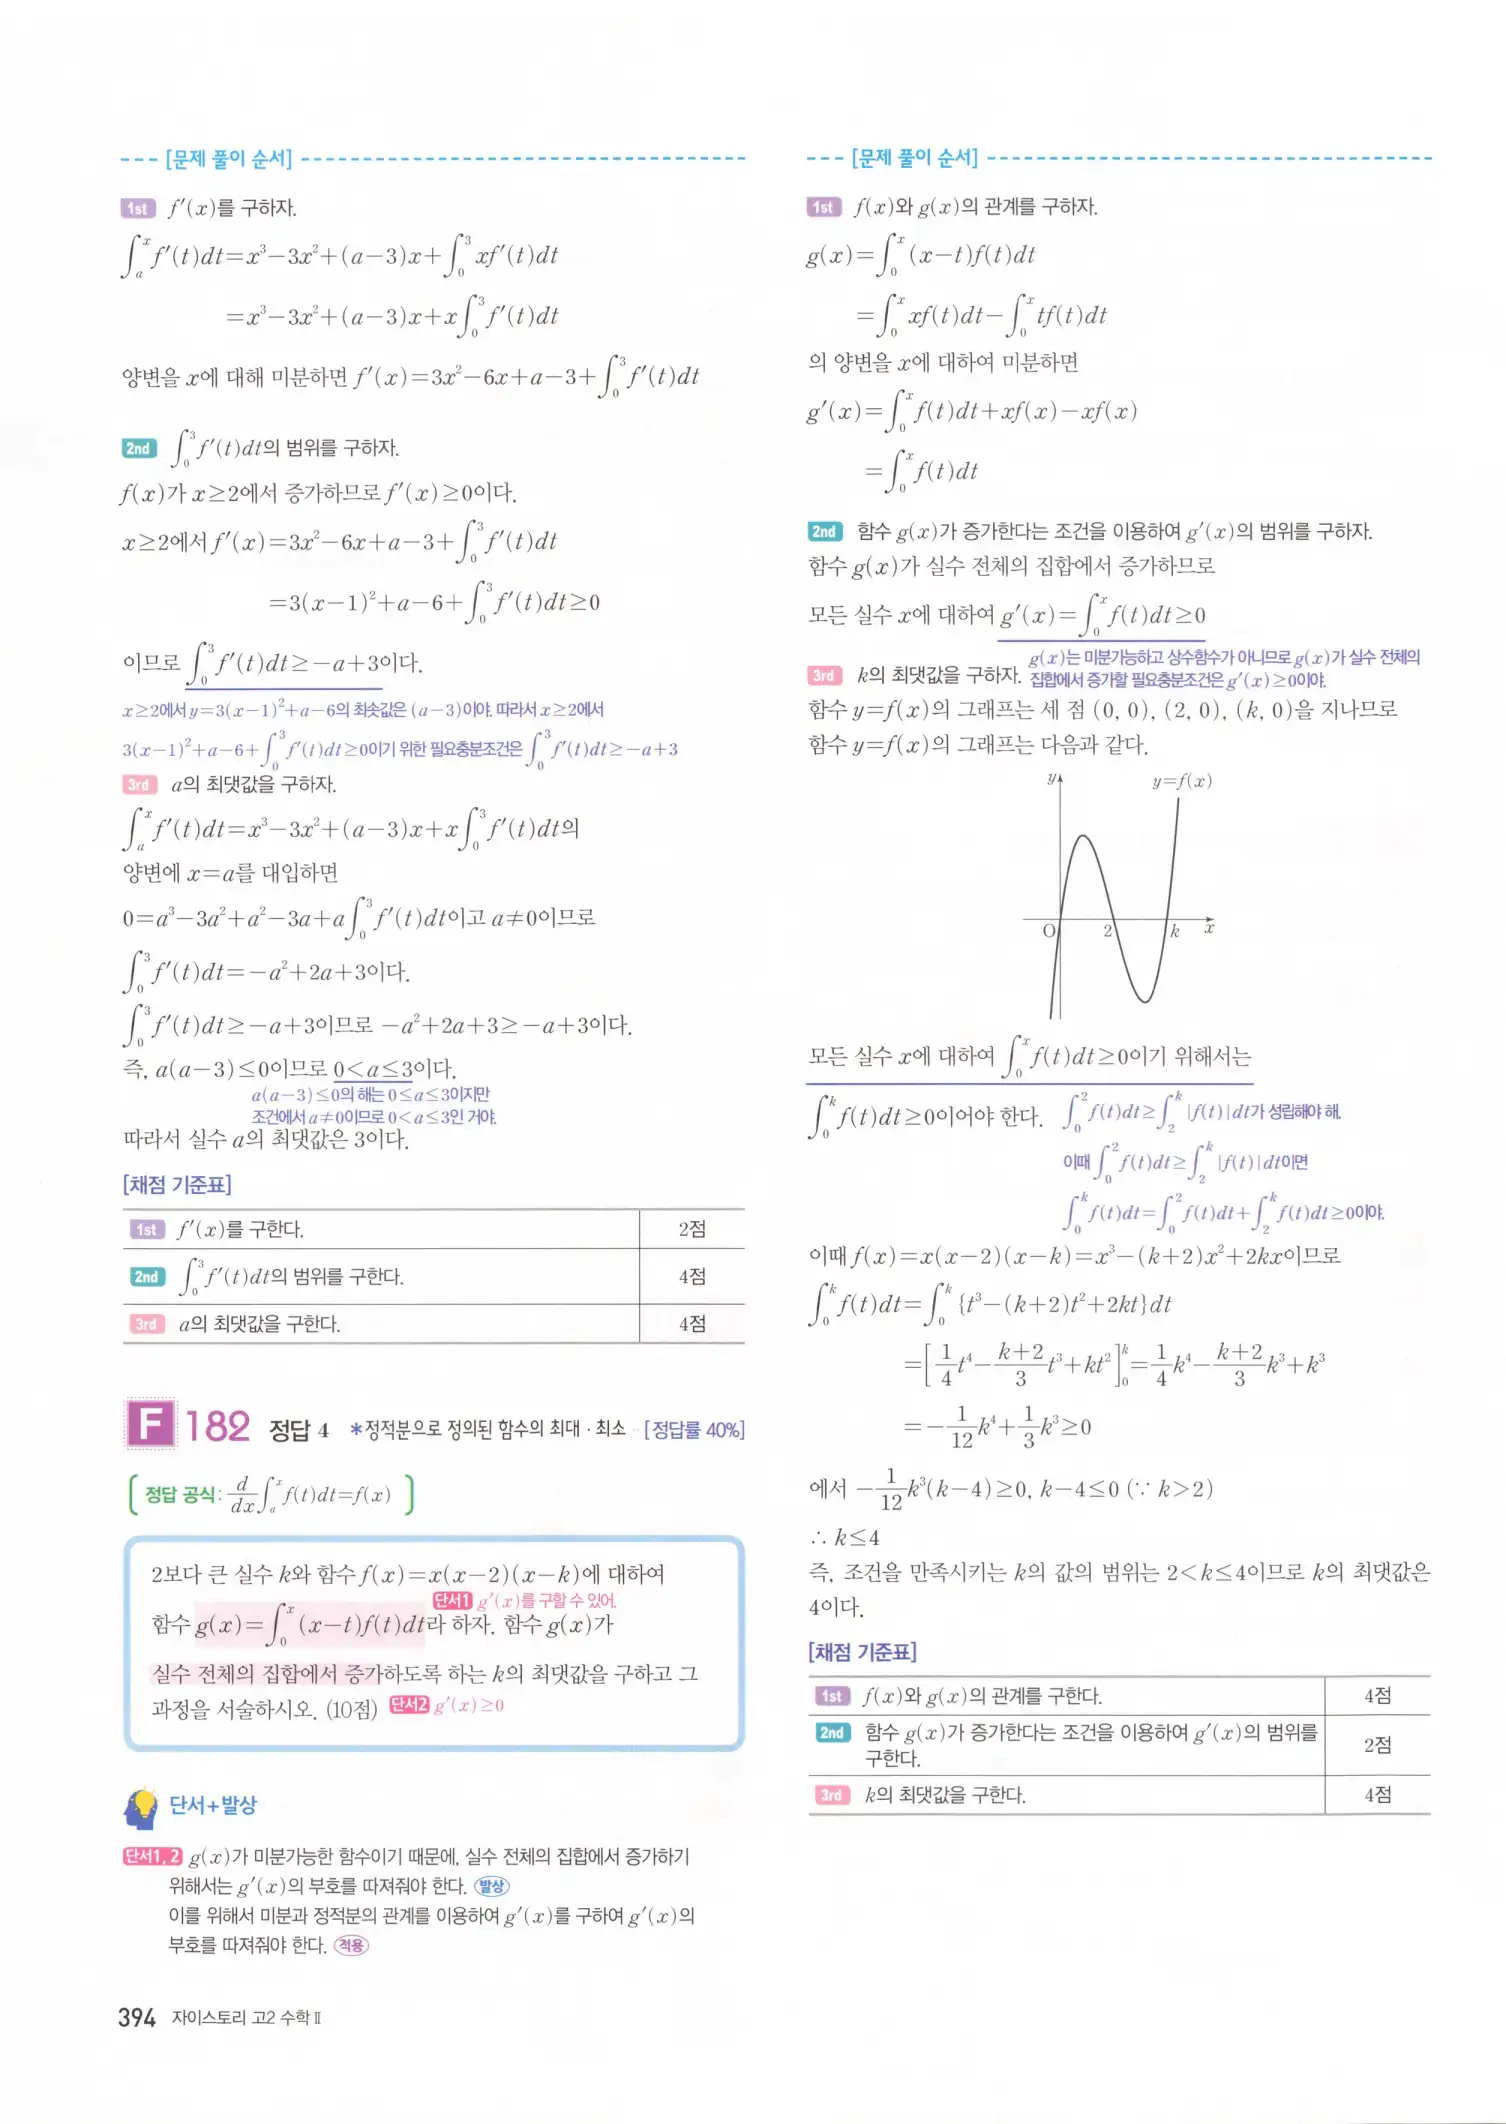 [문제 풀이 순서]
1st f′(x)를 구하자.
∫ₐˣ f′(t)dt=x³−3x²+(a−3)x+∫₀³ xf′(t)dt
=x³−3x²+(a−3)x+x∫₀³ f′(t)dt
양변을 x에 대해 미분하면 f′(x)=3x²−6x+a−3+∫₀³ f′(t)dt
2nd ∫₀³ f′(t)dt의 범위를 구하자.
f(x)가 x≥2에서 증가하므로 f′(x)≥0이다.
x≥2에서 f′(x)=3x²−6x+a−3+∫₀³ f′(t)dt
=3(x−1)²+a−6+∫₀³ f′(t)dt≥0
이므로 ∫₀³ f′(t)dt≥−a+3이다.
x≥2에서 y=3(x−1)²+a−6의 최솟값은 (a−3)이야. 따라서 x≥2에서
3(x−1)²+a−6+∫₀³ f′(t)dt≥0이기 위한 필요충분조건은 ∫₀³ f′(t)dt≥−a+3
3rd a의 최댓값을 구하자.
∫ₐˣ f′(t)dt=x³−3x²+(a−3)x+x∫₀³ f′(t)dt의
양변에 x=a를 대입하면
0=a³−3a²+a²−3a+a∫₀³ f′(t)dt이고 a≠0이므로
∫₀³ f′(t)dt=−a²+2a+3이다.
∫₀³ f′(t)dt≥−a+3이므로 −a²+2a+3≥−a+3이다.
즉, a(a−3)≤0이므로 0<a≤3이다.
a(a−3)≤0의 해는 0≤a≤3이지만
조건에서 a≠0이므로 0<a≤3인 거야.
따라서 실수 a의 최댓값은 3이다.
[채점 기준표]
1st f′(x)를 구한다. 2점
2nd ∫₀³ f′(t)dt의 범위를 구한다. 4점
3rd a의 최댓값을 구한다. 4점
F 182 정답 4 *정적분으로 정의된 함수의 최대·최소 [정답률 40%]
정답 공식: d/dx ∫ₐˣ f(t)dt=f(x)
2보다 큰 실수 k와 함수 f(x)=x(x−2)(x−k)에 대하여
단서1 g′(x)를 구할 수 있어.
함수 g(x)=∫₀ˣ (x−t)f(t)dt라 하자. 함수 g(x)가
실수 전체의 집합에서 증가하도록 하는 k의 최댓값을 구하고 그
과정을 서술하시오. (10점) 단서2 g′(x)≥0
단서+발상
단서1, 2 g(x)가 미분가능한 함수이기 때문에, 실수 전체의 집합에서 증가하기
위해서는 g′(x)의 부호를 따져줘야 한다. 발상
이를 위해서 미분과 정적분의 관계를 이용하여 g′(x)를 구하여 g′(x)의
부호를 따져줘야 한다. 적용
394 자이스토리 고2 수학Ⅱ
[문제 풀이 순서]
1st f(x)와 g(x)의 관계를 구하자.
g(x)=∫₀ˣ (x−t)f(t)dt
=∫₀ˣ xf(t)dt−∫₀ˣ tf(t)dt
의 양변을 x에 대하여 미분하면
g′(x)=∫₀ˣ f(t)dt+xf(x)−xf(x)
=∫₀ˣ f(t)dt
2nd 함수 g(x)가 증가한다는 조건을 이용하여 g′(x)의 범위를 구하자.
함수 g(x)가 실수 전체의 집합에서 증가하므로
모든 실수 x에 대하여 g′(x)=∫₀ˣ f(t)dt≥0
g(x)는 미분가능하고 상수함수가 아니므로 g(x)가 실수 전체의
집합에서 증가할 필요충분조건은 g′(x)≥0이야.
3rd k의 최댓값을 구하자.
함수 y=f(x)의 그래프는 세 점 (0, 0), (2, 0), (k, 0)을 지나므로
함수 y=f(x)의 그래프는 다음과 같다.
y y=f(x)
O 2 k x
모든 실수 x에 대하여 ∫₀ˣ f(t)dt≥0이기 위해서는
∫₀ᵏ f(t)dt≥0이어야 한다. ∫₀² f(t)dt≥∫₂ᵏ |f(t)|dt가 성립해야 해.
이때 ∫₀² f(t)dt≥∫₂ᵏ |f(t)|dt이면
∫₀ᵏ f(t)dt=∫₀² f(t)dt+∫₂ᵏ f(t)dt≥0이야.
이때 f(x)=x(x−2)(x−k)=x³−(k+2)x²+2kx이므로
∫₀ᵏ f(t)dt=∫₀ᵏ {t³−(k+2)t²+2kt}dt
=[1/4 t⁴−(k+2)/3 t³+kt²]₀ᵏ=1/4 k⁴−(k+2)/3 k³+k³
=−1/12 k⁴+1/3 k³≥0
에서 −1/12 k³(k−4)≥0, k−4≤0 (∵ k>2)
∴ k≤4
즉, 조건을 만족시키는 k의 값의 범위는 2<k≤4이므로 k의 최댓값은
4이다.
[채점 기준표]
1st f(x)와 g(x)의 관계를 구한다. 4점
2nd 함수 g(x)가 증가한다는 조건을 이용하여 g′(x)의 범위를
구한다. 2점
3rd k의 최댓값을 구한다. 4점